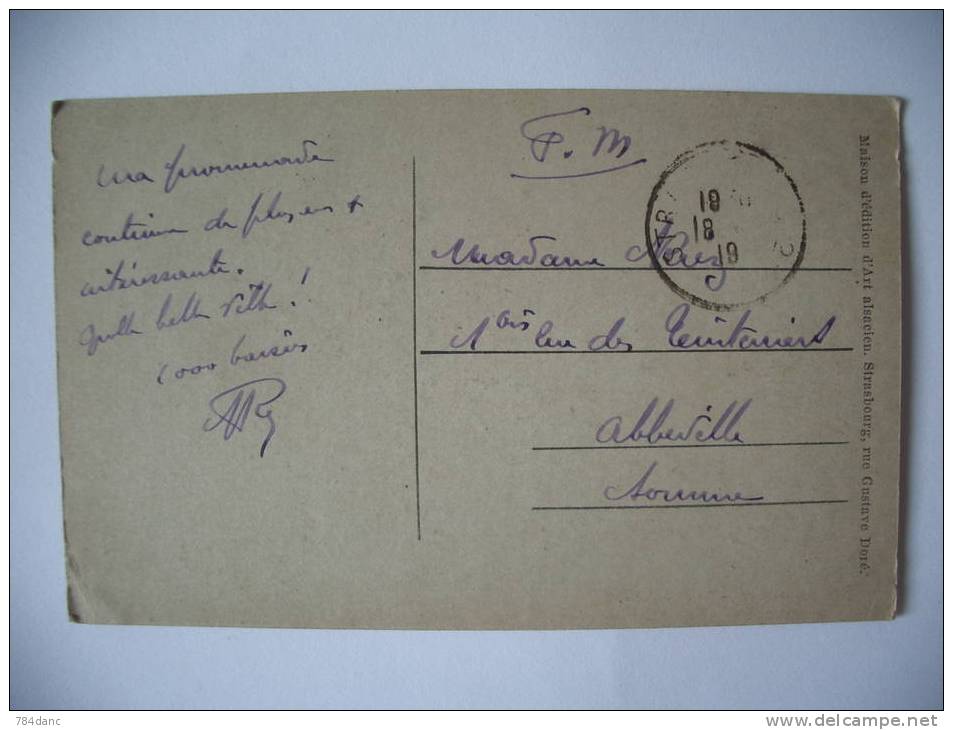 ma promenade
continue de plus en +
intéressante.
quelle belle ville !
1000 baisers
F. M
STR
18
18
19
Madame
1 bis rue des Teinturiers
Abbeville
Somme
Maison d'édition d'Art alsacien. Strasbourg, rue Gustave Doré.
784danc
www.delcampe.net